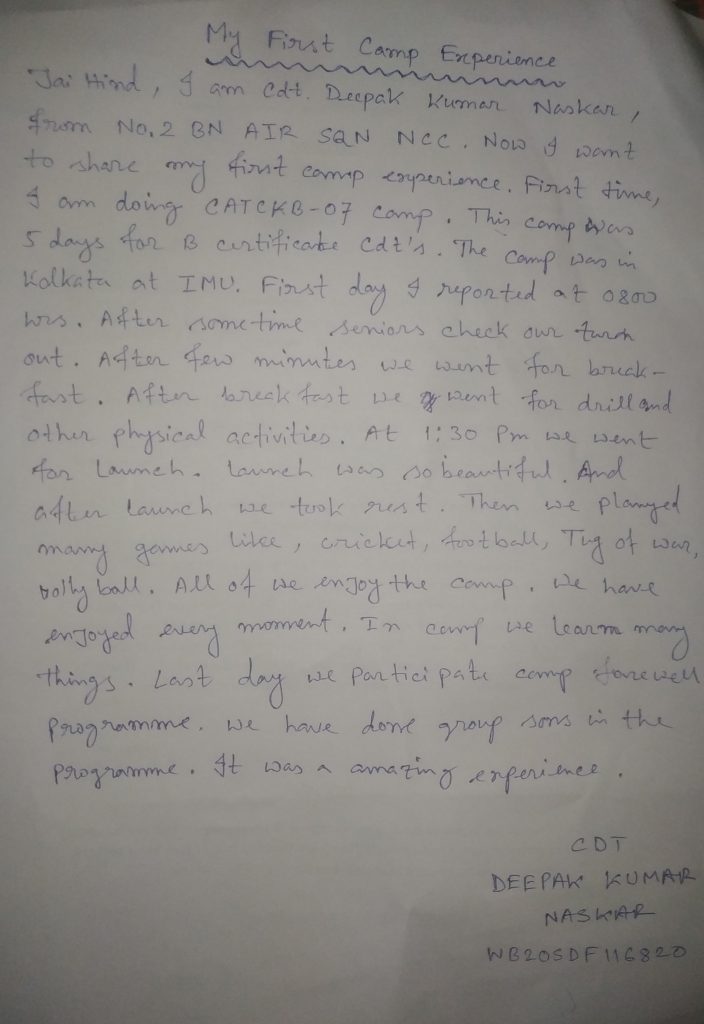 My First Camp Experience
Jai Hind, I am Cdt. Deepak Kumar Naskar,
from No. 2 BN AIR SQN NCC. Now I want
to share my first camp experience. First time,
I am doing CATCKB-07 camp. This camp was
5 days for B certificate Cdt's. The camp was in
Kolkata at IMU. First day I reported at 0800
hrs. After sometime seniors check our turn
out. After few minutes we went for break-
fast. After breakfast we went for drill and
other physical activities. At 1:30 Pm we went
for Launch. Launch was so beautiful. And
after launch we took rest. Then we planyed
many games like, cricket, football, Tug of war,
volly ball. All of we enjoy the camp. We have
enjoyed every moment. In camp we learn many
things. Last day we participate camp farewell
programme. We have done group sons in the
programme. It was a amazing experience.
CDT
DEEPAK KUMAR
NASKAR
WB20SDF116820